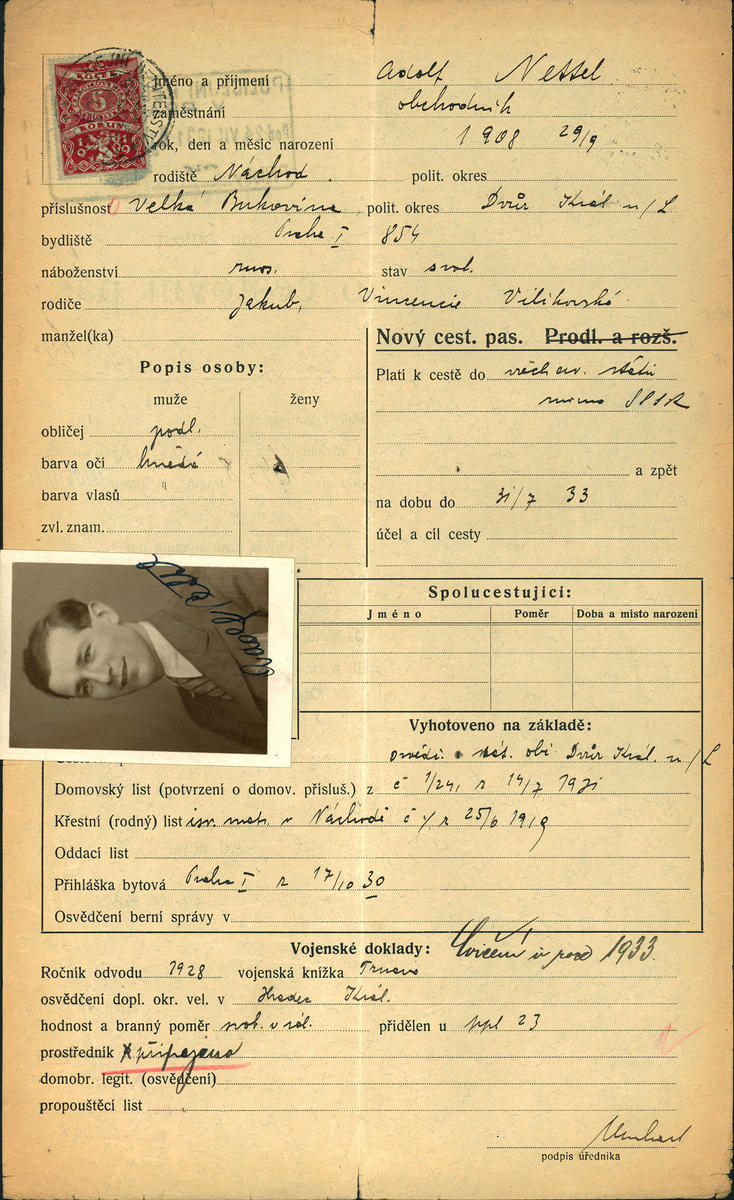 5
KORUN
1919
Jméno a příjmení Adolf Nettel
zaměstnání obchodník
rok, den a měsíc narození 1908 29/9
rodiště Náchod. polit. okres
příslušnost Velká Bukovina polit. okres Dvůr Král n/L
bydliště Praha I 854
náboženství stav svob.
rodiče Jakub, Vincencie Vilikovská
manžel(ka)
Nový cest. pas. Prodl. a rozš.
Popis osoby:
Platí k cestě do všech ev. států
mimo SSSR
muže ženy
obličej podl.
barva očí hnědé
barva vlasů "
zvl. znam.
a zpět
na dobu do 31/7 33
účel a cíl cesty
Adolf Nettel
Spolucestující:
Jméno Poměr Doba a místo narození
Vyhotoveno na základě:
osvědč. stát. obč. Dvůr Král. n/L
Domovský list (potvrzení o domov. přísluš.) z č 1/241 z 14/7 1931
Křestní (rodný) list isr. matr. v Náchodě č z 25/6 1919
Oddací list
Přihláška bytová Praha I z 17/10 30
Osvědčení berní správy v
Vojenské doklady: Cvičení v roce 1933.
Ročník odvodu 1928 vojenská knížka Trnava
osvědčení dopl. okr. vel. v Hradec Král.
hodnost a branný poměr svob. v zál. přidělen u ppl 23
prostředník připojeno
domobr. legit. (osvědčení)
propouštěcí list
podpis úředníka